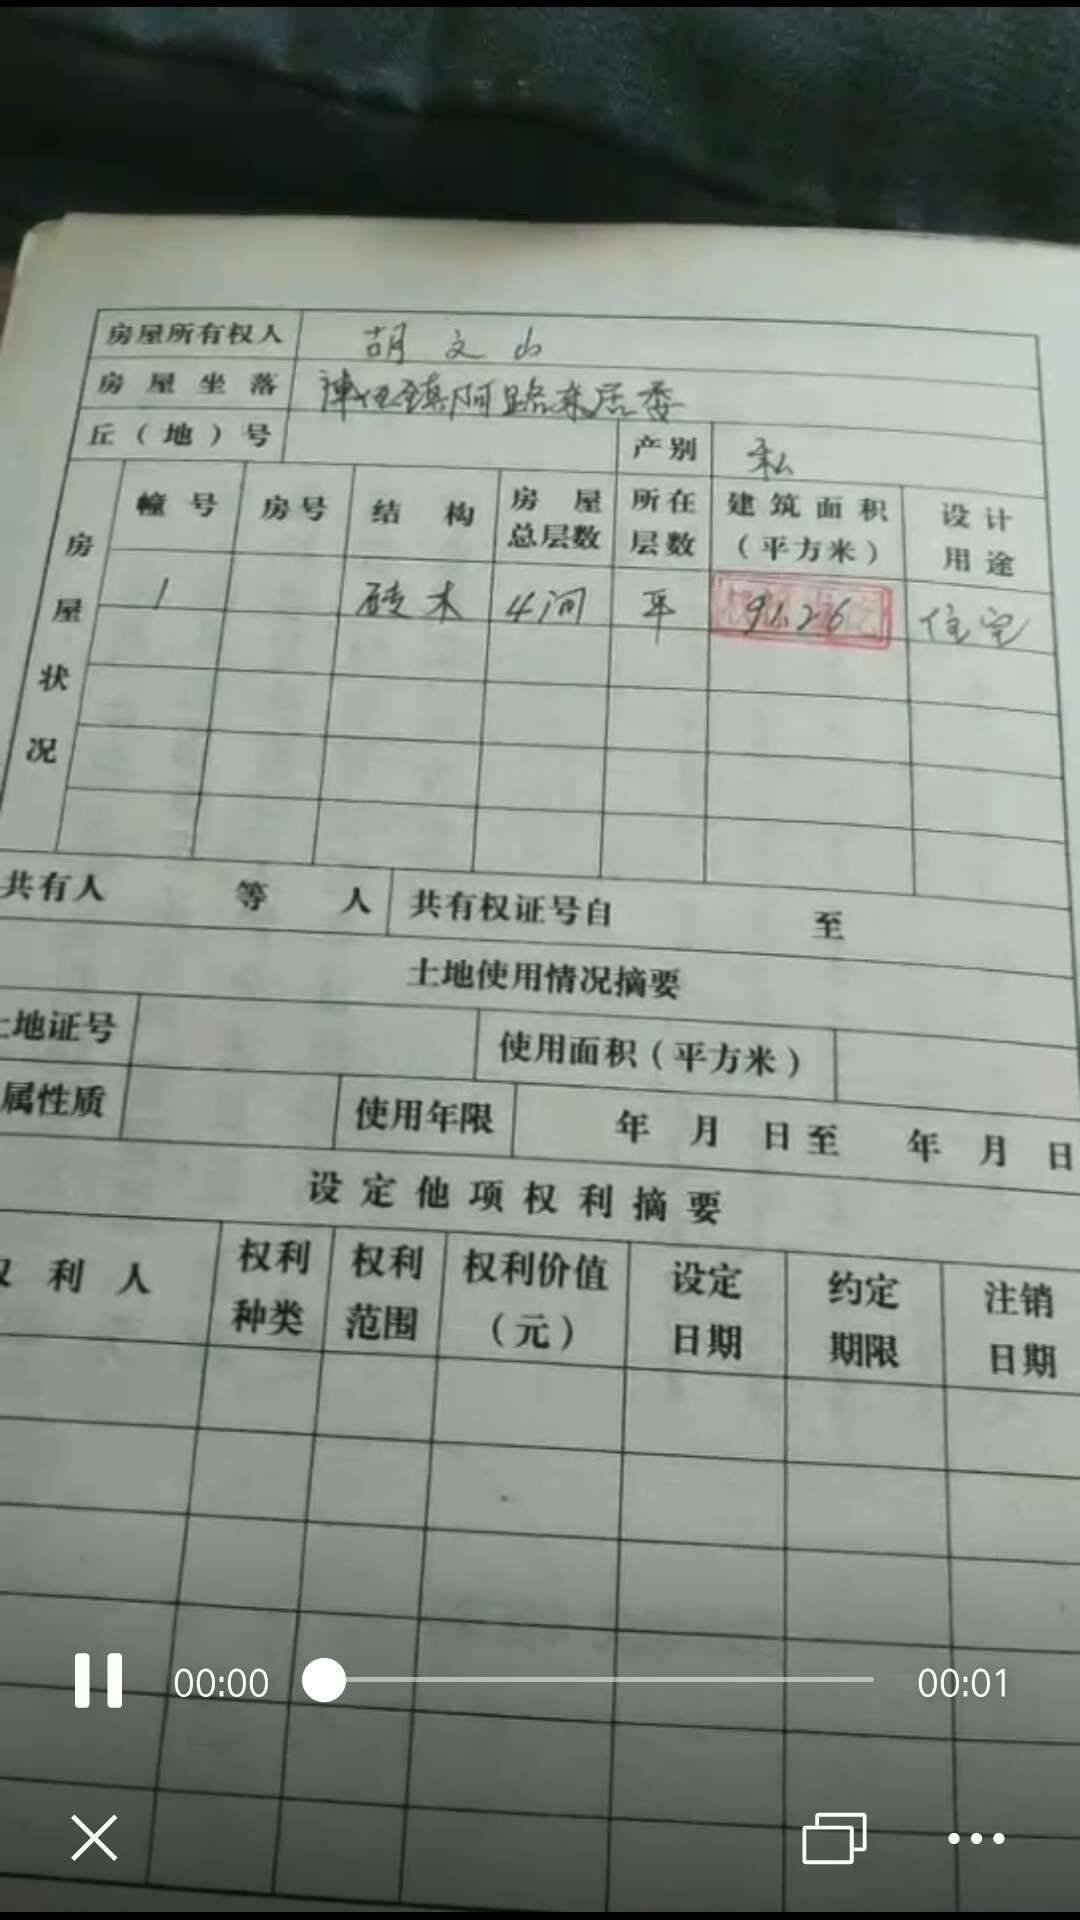 房屋所有权人 胡文山
房屋坐落 镇阿路来居委
丘(地)号 产别 私
房屋状况 幢号 房号 结构 房屋总层数 所在层数 建筑面积(平方米) 设计用途
1 砖木 4间 平 住宅
共有人 等 人 共有权证号自 至
土地使用情况摘要
土地证号 使用面积(平方米)
属性质 使用年限 年 月 日至 年 月 日
设定他项权利摘要
权利人 权利种类 权利范围 权利价值(元) 设定日期 约定期限 注销日期
00:00 00:01